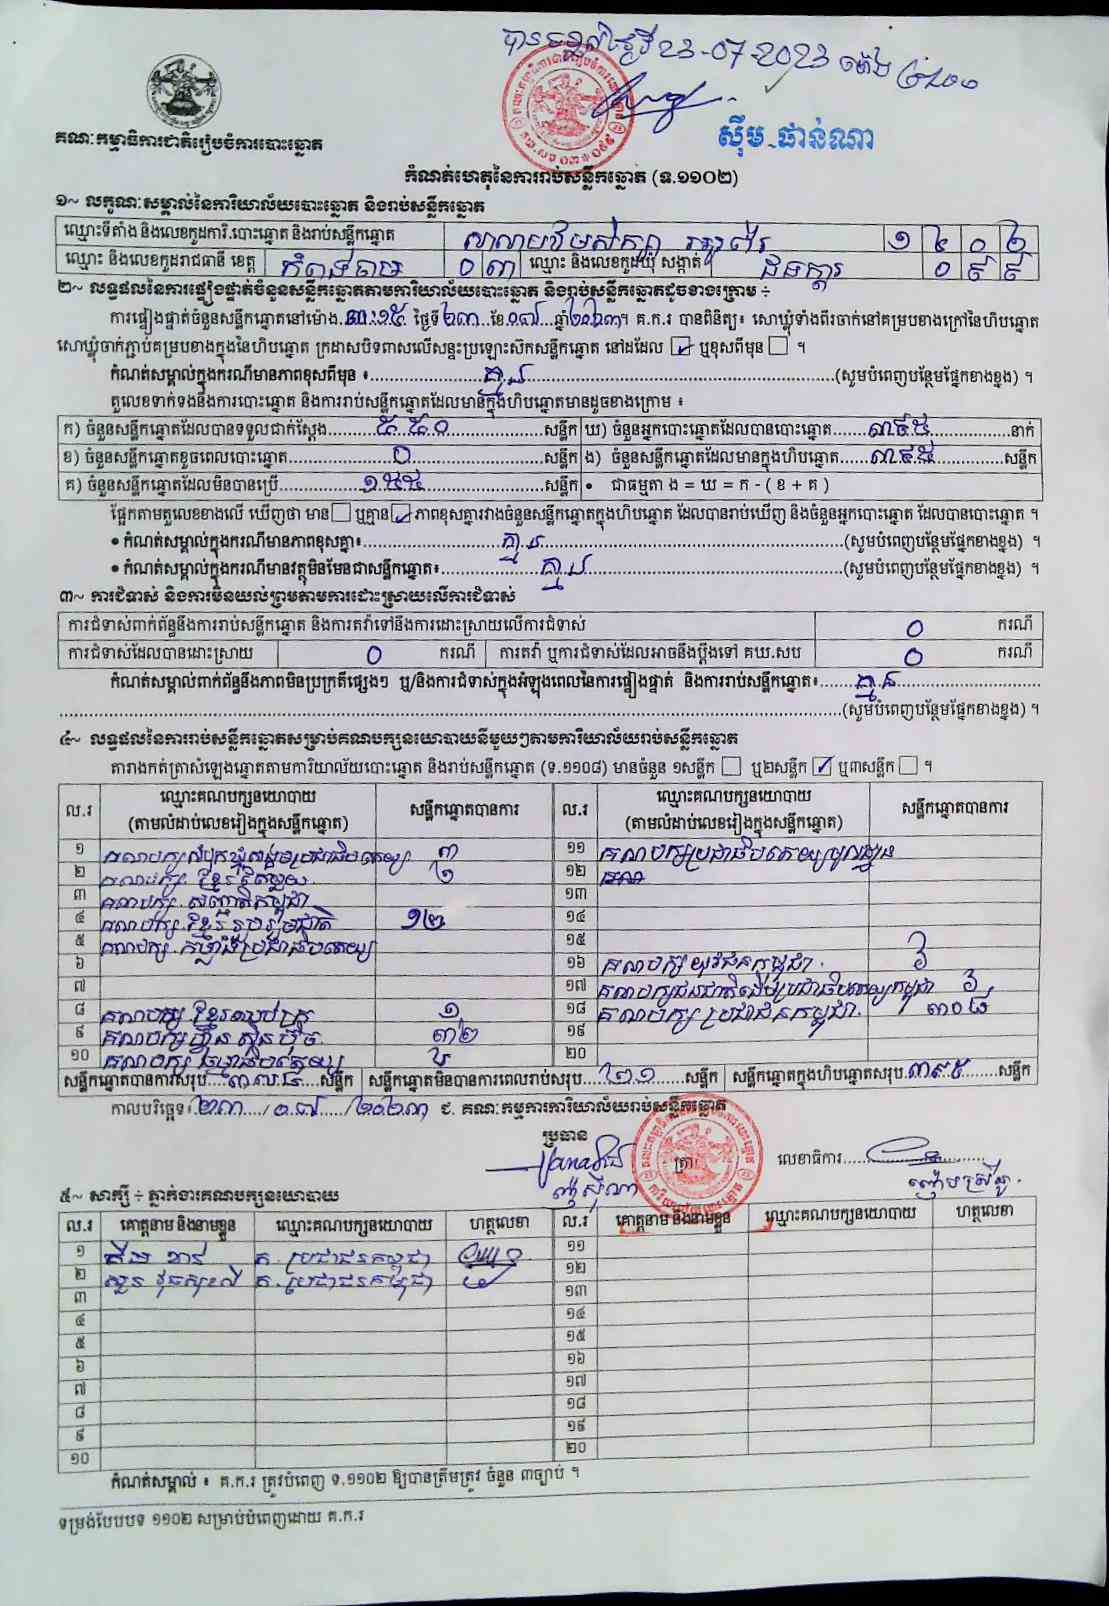 បានទទួលថ្ងៃទី 23-07-2023
ស៊ឹម ផាន់ណា
គណៈកម្មាធិការជាតិរៀបចំការបោះឆ្នោត
កំណត់ហេតុនៃការរាប់សន្លឹកឆ្នោត (ទ.១១០២)
១~ លក្ខណៈសម្គាល់នៃការិយាល័យបោះឆ្នោត និងរាប់សន្លឹកឆ្នោត
ឈ្មោះទីតាំង និងលេខកូដការិ.បោះឆ្នោត និងរាប់សន្លឹកឆ្នោត
ឈ្មោះ និងលេខកូដរាជធានី ខេត្ត កំពង់ចាម ០ ៣ ឈ្មោះ និងលេខកូដឃុំ សង្កាត់ ០ ៩ ៩
២~ លទ្ធផលនៃការផ្ទៀងផ្ទាត់ចំនួនសន្លឹកឆ្នោតតាមការិយាល័យបោះឆ្នោត និងរាប់សន្លឹកឆ្នោតដូចខាងក្រោម ÷
ការផ្ទៀងផ្ទាត់ចំនួនសន្លឹកឆ្នោតនៅម៉ោង.៣:១៥ ថ្ងៃទី២៣...ខែ០៧....ឆ្នាំ២០២៣។ គ.ក.រ បានពិនិត្យ៖ សោឃ្លុំទាំងពីរចាក់នៅគម្របខាងក្រៅនៃហិបឆ្នោត
សោឃ្លុំចាក់ភ្ជាប់គម្របខាងក្នុងនៃហិបឆ្នោត ក្រដាសបិទពាសលើសន្ទះប្រឡោះស៊កសន្លឹកឆ្នោត នៅដដែល ☑ ឬខុសពីមុន ☐ ។
កំណត់សម្គាល់ក្នុងករណីមានភាពខុសពីមុន ៖ គ្មាន (សូមបំពេញបន្ថែមផ្នែកខាងខ្នង) ។
តួលេខទាក់ទងនឹងការបោះឆ្នោត និងការរាប់សន្លឹកឆ្នោតដែលមានក្នុងហិបឆ្នោតមានដូចខាងក្រោម ៖
ក) ចំនួនសន្លឹកឆ្នោតដែលបានទទួលជាក់ស្តែង ៥៥០ សន្លឹក ឃ) ចំនួនអ្នកបោះឆ្នោតដែលបានបោះឆ្នោត ៣៩៥ នាក់
ខ) ចំនួនសន្លឹកឆ្នោតខូចពេលបោះឆ្នោត ០ សន្លឹក ង) ចំនួនសន្លឹកឆ្នោតដែលមានក្នុងហិបឆ្នោត ៣៩៥ សន្លឹក
គ) ចំនួនសន្លឹកឆ្នោតដែលមិនបានប្រើ ១៥៥ សន្លឹក • ជាធម្មតា ង = ឃ = ក - ( ខ + គ )
ផ្អែកតាមតួលេខខាងលើ ឃើញថា មាន ☐ ឬគ្មាន ☑ ភាពខុសគ្នារវាងចំនួនសន្លឹកឆ្នោតក្នុងហិបឆ្នោត ដែលបានរាប់ឃើញ និងចំនួនអ្នកបោះឆ្នោត ដែលបានបោះឆ្នោត ។
• កំណត់សម្គាល់ក្នុងករណីមានភាពខុសគ្នា៖ គ្មាន (សូមបំពេញបន្ថែមផ្នែកខាងខ្នង) ។
• កំណត់សម្គាល់ក្នុងករណីមានវត្ថុមិនមែនជាសន្លឹកឆ្នោត៖ គ្មាន (សូមបំពេញបន្ថែមផ្នែកខាងខ្នង) ។
៣~ ការជំទាស់ និងការមិនយល់ព្រមតាមការដោះស្រាយលើការជំទាស់
ការជំទាស់ពាក់ព័ន្ធនឹងការរាប់សន្លឹកឆ្នោត និងការតវ៉ាទៅនឹងការដោះស្រាយលើការជំទាស់ ០ ករណី
ការជំទាស់ដែលបានដោះស្រាយ ០ ករណី ការតវ៉ា ឬការជំទាស់ដែលអាចនឹងប្តឹងទៅ គឃ.សប ០ ករណី
កំណត់សម្គាល់ពាក់ព័ន្ធនឹងភាពមិនប្រក្រតីផ្សេងៗ ឬ/និងការជំទាស់ក្នុងអំឡុងពេលនៃការផ្ទៀងផ្ទាត់ និងការរាប់សន្លឹកឆ្នោត៖ គ្មាន
(សូមបំពេញបន្ថែមផ្នែកខាងខ្នង) ។
៤~ លទ្ធផលនៃការរាប់សន្លឹកឆ្នោតសម្រាប់គណបក្សនយោបាយនីមួយៗតាមការិយាល័យរាប់សន្លឹកឆ្នោត
តារាងកត់ត្រាសំឡេងឆ្នោតតាមការិយាល័យបោះឆ្នោត និងរាប់សន្លឹកឆ្នោត (ទ.១១០៨) មានចំនួន ១សន្លឹក ☐ ឬ២សន្លឹក ☑ ឬ៣សន្លឹក ☐ ។
ល.រ ឈ្មោះគណបក្សនយោបាយ (តាមលំដាប់លេខរៀងក្នុងសន្លឹកឆ្នោត) សន្លឹកឆ្នោតបានការ ល.រ ឈ្មោះគណបក្សនយោបាយ (តាមលំដាប់លេខរៀងក្នុងសន្លឹកឆ្នោត) សន្លឹកឆ្នោតបានការ
១ គណបក្សសំបុកឃ្មុំសង្គមប្រជាធិបតេយ្យ ៣ ១១ គណបក្សប្រជាធិបតេយ្យមូលដ្ឋាន
២ គណបក្ស ខ្មែរតែមួយ ១២
៣ គណបក្ស សញ្ជាតិកម្ពុជា ១៣
៤ គណបក្ស ខ្មែររួបរួមជាតិ ១២ ១៤
៥ គណបក្ស កម្លាំងប្រជាធិបតេយ្យ ១៥
៦ ១៦ គណបក្ស យុវជនកម្ពុជា
៧ ១៧ គណបក្សជនជាតិដើមប្រជាធិបតេយ្យកម្ពុជា
៨ គណបក្ស ខ្មែរឈប់ក្រ ១ ១៨ គណបក្ស ប្រជាជនកម្ពុជា ៣០៨
៩ គណបក្ស ហ្វ៊ុនស៊ិនប៉ិច ៣២ ១៩
១០ គណបក្ស ធម្មាធិបតេយ្យ ២០
សន្លឹកឆ្នោតបានការសរុប ៣៧៤ សន្លឹក សន្លឹកឆ្នោតមិនបានការពេលរាប់សរុប ២១ សន្លឹក សន្លឹកឆ្នោតក្នុងហិបឆ្នោតសរុប ៣៩៥ សន្លឹក
កាលបរិច្ឆេទ៖ ២៣/០៧/២០២៣ ជ. គណៈកម្មការការិយាល័យរាប់សន្លឹកឆ្នោត
ប្រធាន ត្រា លេខាធិការ
៥~ សាក្សី ÷ ភ្នាក់ងារគណបក្សនយោបាយ
ល.រ គោត្តនាម និងនាមខ្លួន ឈ្មោះគណបក្សនយោបាយ ហត្ថលេខា ល.រ គោត្តនាម និងនាមខ្លួន ឈ្មោះគណបក្សនយោបាយ ហត្ថលេខា
១ គ. ប្រជាជនកម្ពុជា ១១
២ គ. ប្រជាជនកម្ពុជា ១២
៣ ១៣
៤ ១៤
៥ ១៥
៦ ១៦
៧ ១៧
៨ ១៨
៩ ១៩
១០ ២០
កំណត់សម្គាល់ ៖ គ.ក.រ ត្រូវបំពេញ ទ.១១០២ ឱ្យបានត្រឹមត្រូវ ចំនួន ៣ច្បាប់ ។
ទម្រង់បែបបទ ១១០២ សម្រាប់បំពេញដោយ គ.ក.រ